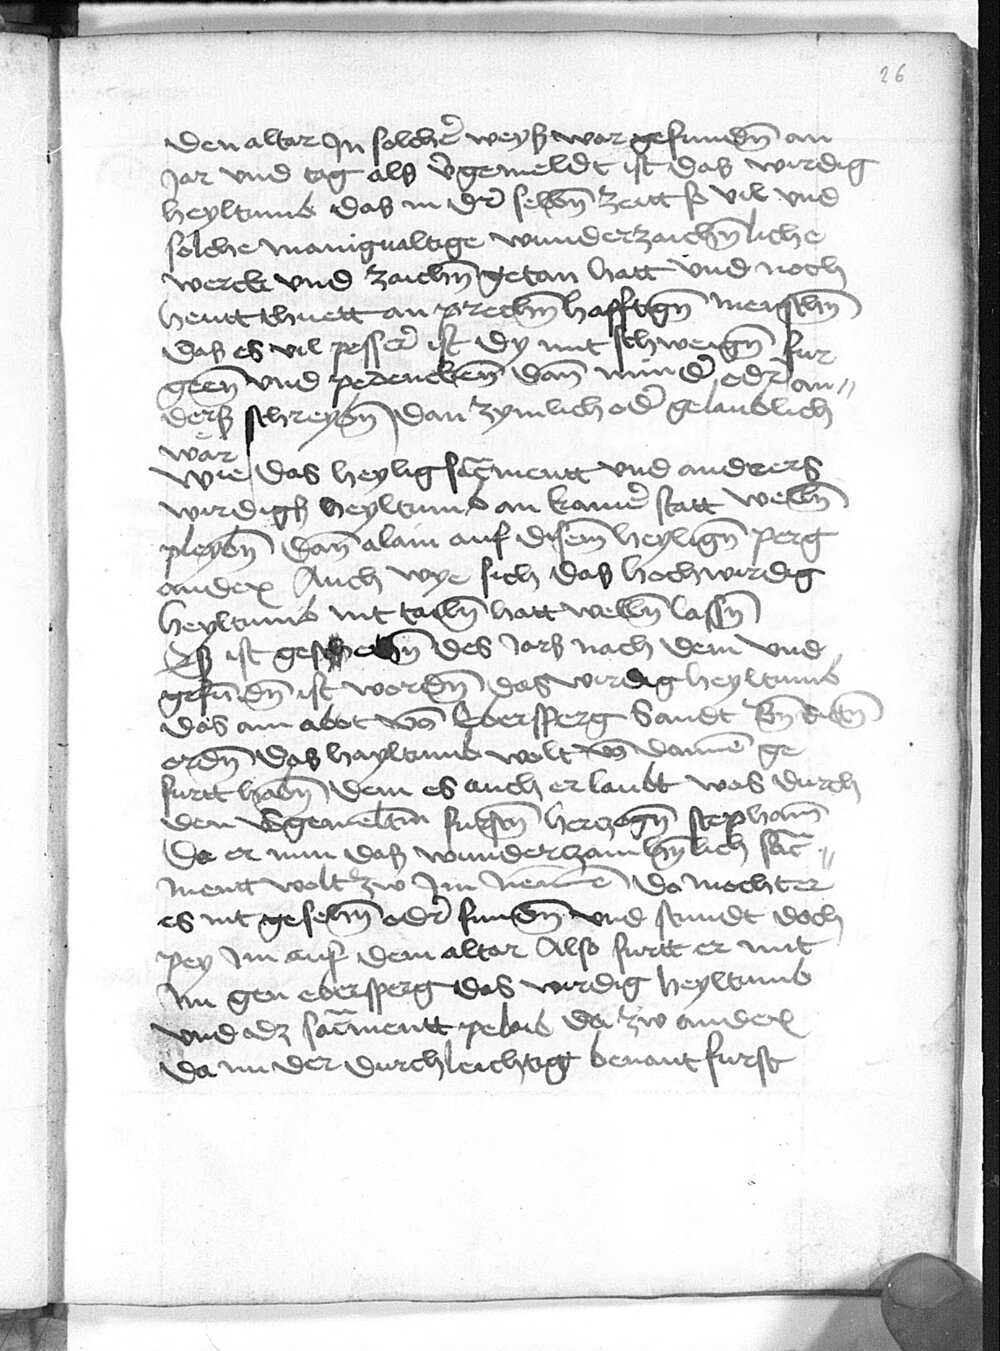 26
den altar In solcher weyß war gefunden an
Jar vnd tag als vorgemeldt ist das wirdig
heyltumb das in der selben zeitt so vil vnd
solche manigualtige wunderzaichenliche
werck vnd zaichen getan hatt vnd noch
heutt thuett an prechenhafftigen menschen
das es vil pesser ist dy mit schweigen fur
geen vnd dann minder oder an〃
derß schreyben dan zymlich oder gelaublich
wär
Wie das heylig sacramentt vnd anders
wirdigs heyltumb an kainer statt wellen
pleyben dann alain auf disem heyligen perg
andex Auch wye sich das hochwirdig
heyltumb nit tailen hatt wellen lassen
Es ist geschehen des Jars nach dem vnd
gefunden ist worden das wirdig heyltumb
das ain abbt von Ebersperg Sandt Benedicten
orden das hayltumb wolt von dannen ge
furtt haben dem es auch erlaubt was durch
den vorgemelten fursten herczogen stephann
Da er nun das wunderzaichenlich sacra〃
mentt wolt zw Im nemen da mocht er
es nit gesehen oder finden vnd stundt doch
pey Im auf dem altar Also furtt er mit
Im gen ebersperg das wirdig heyltumb
vnd dz sacramentt pelaib da zw andex
da nu der durchleichtig benant furst